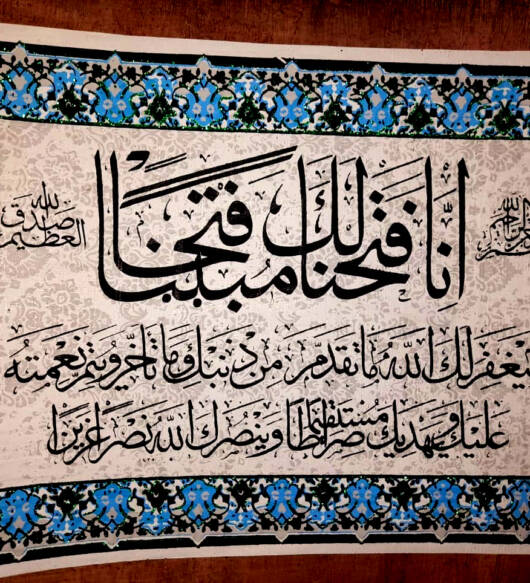 إِنَّا فَتَحْنَا لَكَ فَتْحًا مُبِينًا
لِيَغْفِرَ لَكَ اللَّهُ مَا تَقَدَّمَ مِنْ ذَنْبِكَ وَمَا تَأَخَّرَ وَيُتِمَّ نِعْمَتَهُ
عَلَيْكَ وَيَهْدِيَكَ صِرَاطًا مُسْتَقِيمًا وَيَنْصُرَكَ اللَّهُ نَصْرًا عَزِيزًا
صدق الله
العظيم